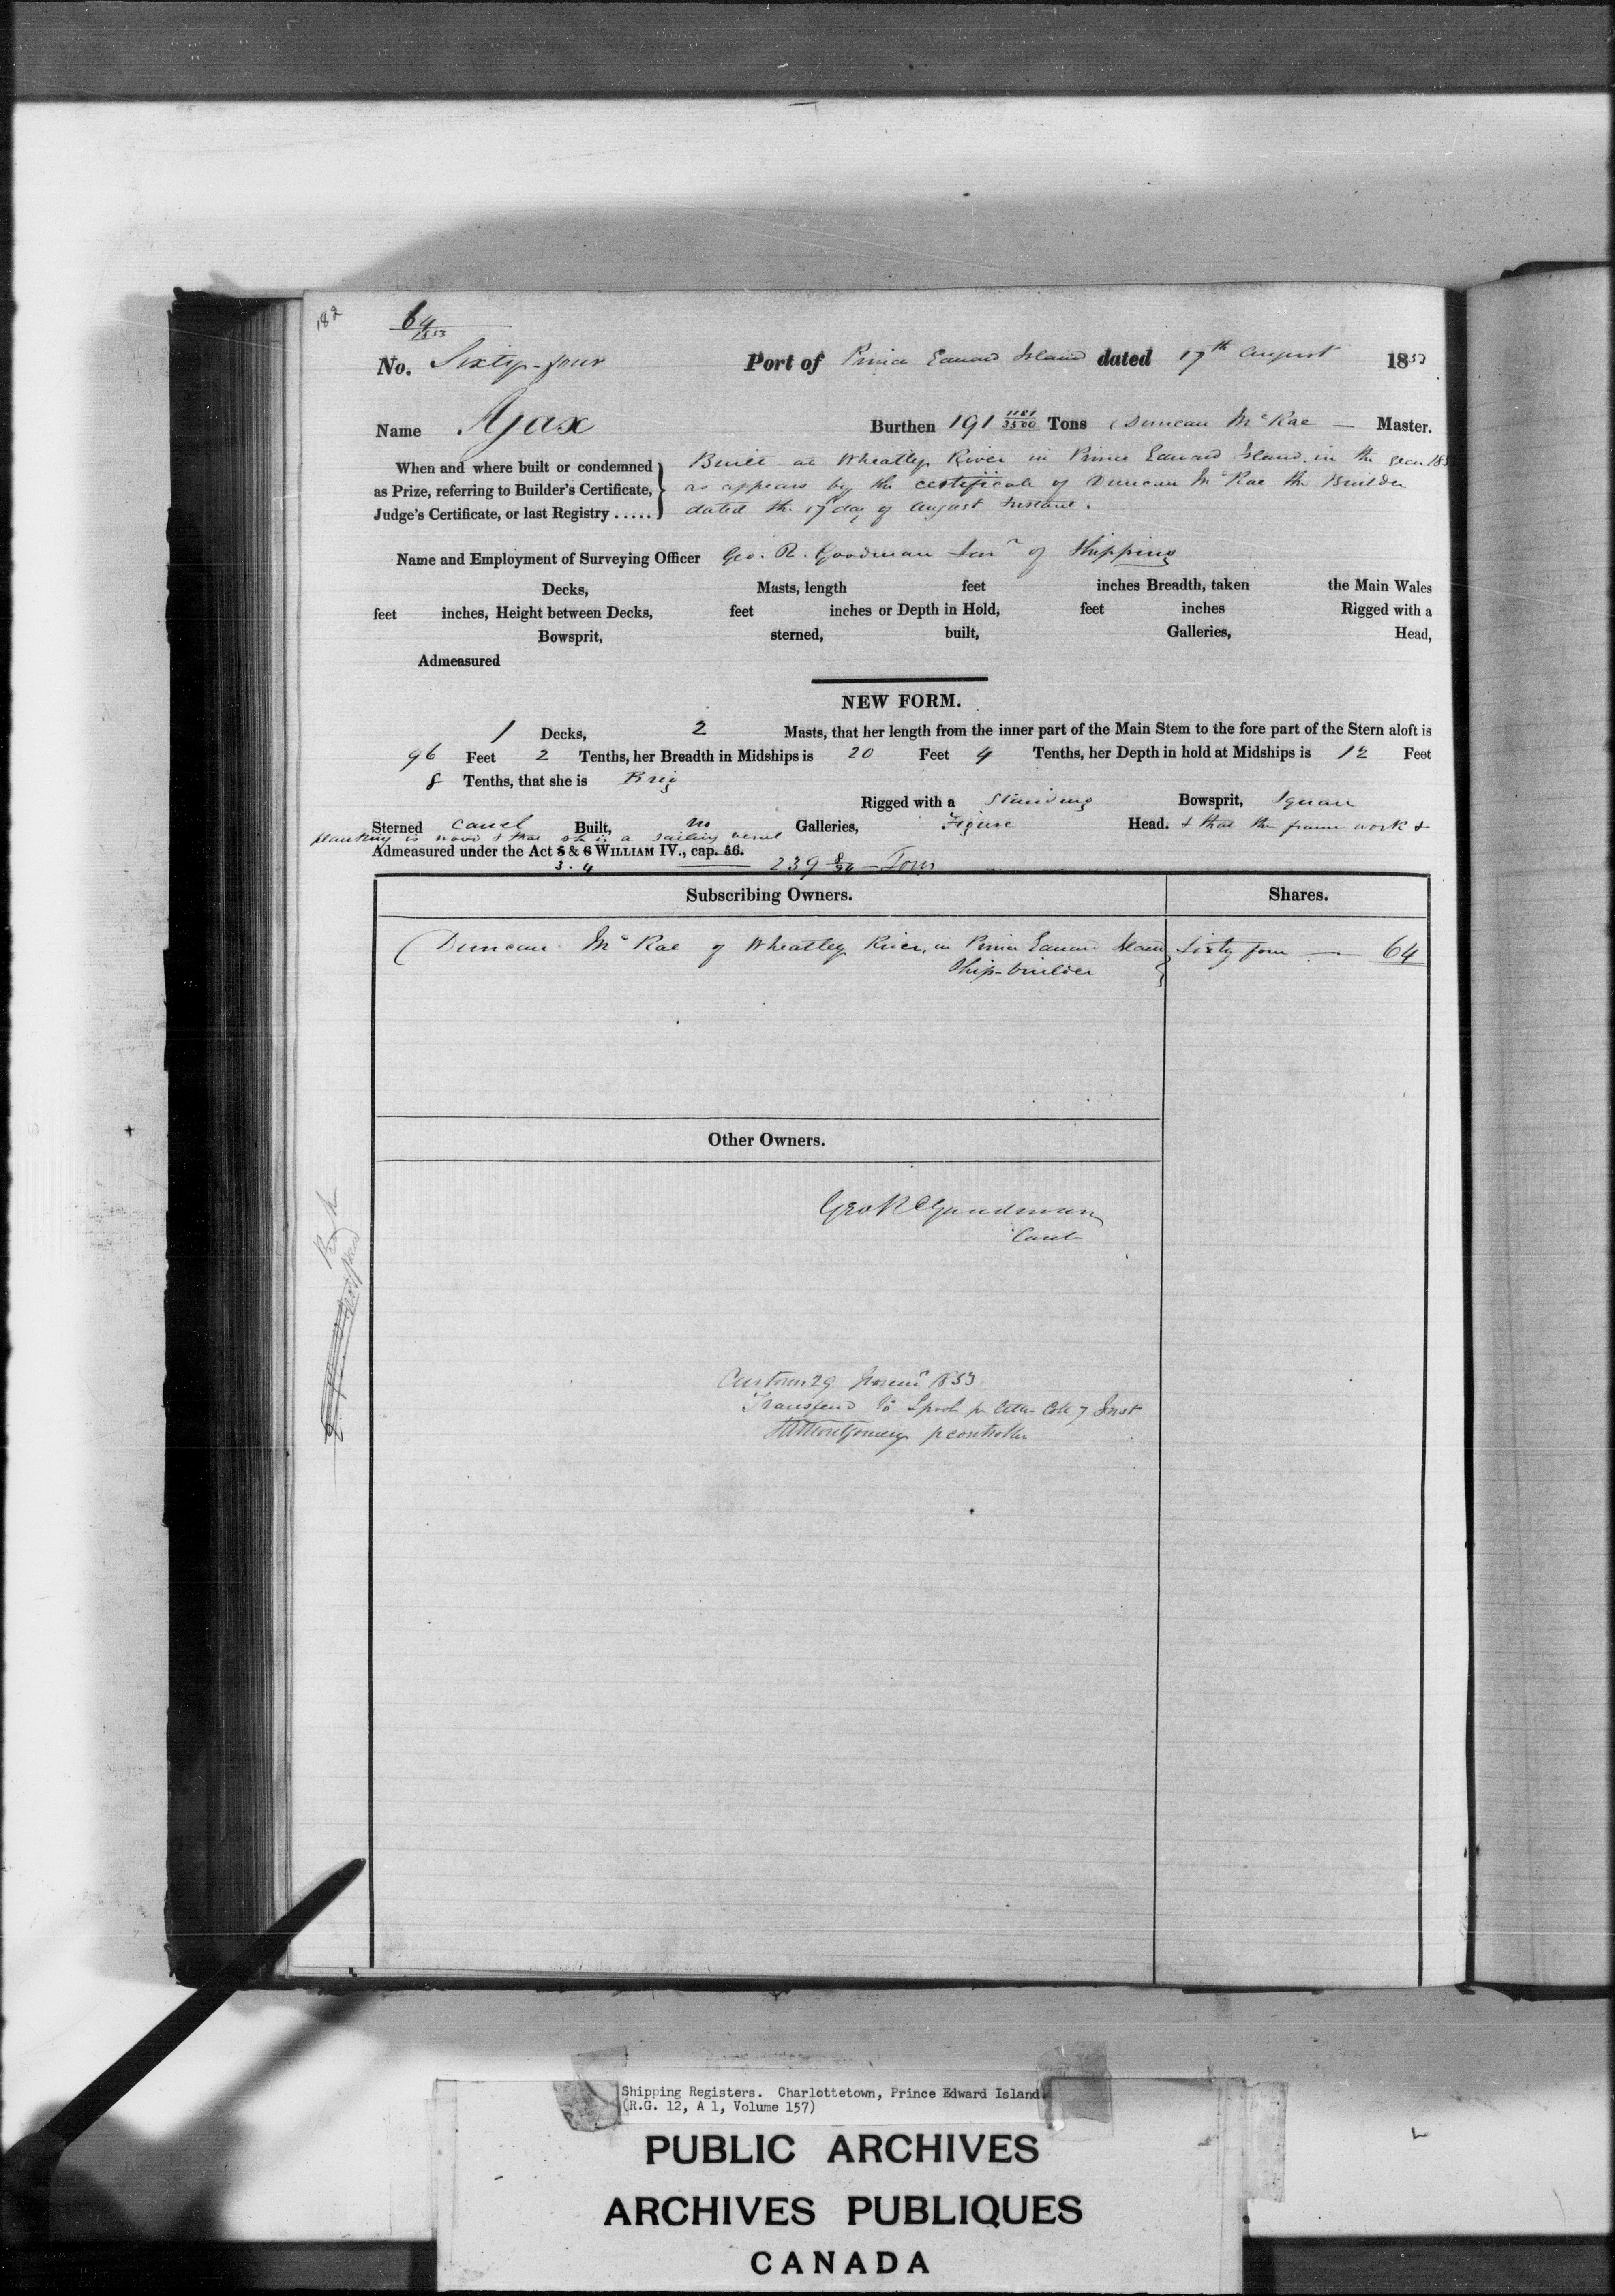 182
64
1853
No. Sixty-four Port of Prince Edward Island dated 17th August 1853
Name Ajax Burthen 191 1181/3500 Tons Duncan McRae — Master.
When and where built or condemned as Prize, referring to Builder's Certificate, Judge's Certificate, or last Registry .....
Built at Wheatley River in Prince Edward Island in the year 185
as appears by the certificate of Duncan McRae the Builder
dated the 17 day of August Instant.
Name and Employment of Surveying Officer Geo. R. Goodman of Shipping
Decks, Masts, length feet inches Breadth, taken the Main Wales
feet inches, Height between Decks, feet inches or Depth in Hold, feet inches Rigged with a
Bowsprit, sterned, built, Galleries, Head,
Admeasured
NEW FORM.
1 Decks, 2 Masts, that her length from the inner part of the Main Stem to the fore part of the Stern aloft is
96 Feet 2 Tenths, her Breadth in Midships is 20 Feet 4 Tenths, her Depth in hold at Midships is 12 Feet
8 Tenths, that she is Brig
Rigged with a Standing Bowsprit, Square
Sterned Carvel Built, no Galleries, Figure Head. & that the frame work &
planking is wood & that she is a sailing vessel
Admeasured under the Act 5 & 6 WILLIAM IV., cap. 56.
3. 4 239 Tons
Subscribing Owners. Shares.
Duncan McRae of Wheatley River, in Prince Edward Island Sixty four — 64
Ship-builder
Other Owners.
Geo R Goodman
Customs 29 1853
Transferred to Lpool pr letter 7 Inst
Montgomery controller
Shipping Registers. Charlottetown, Prince Edward Island
(R.G. 12, A 1, Volume 157)
PUBLIC ARCHIVES
ARCHIVES PUBLIQUES
CANADA